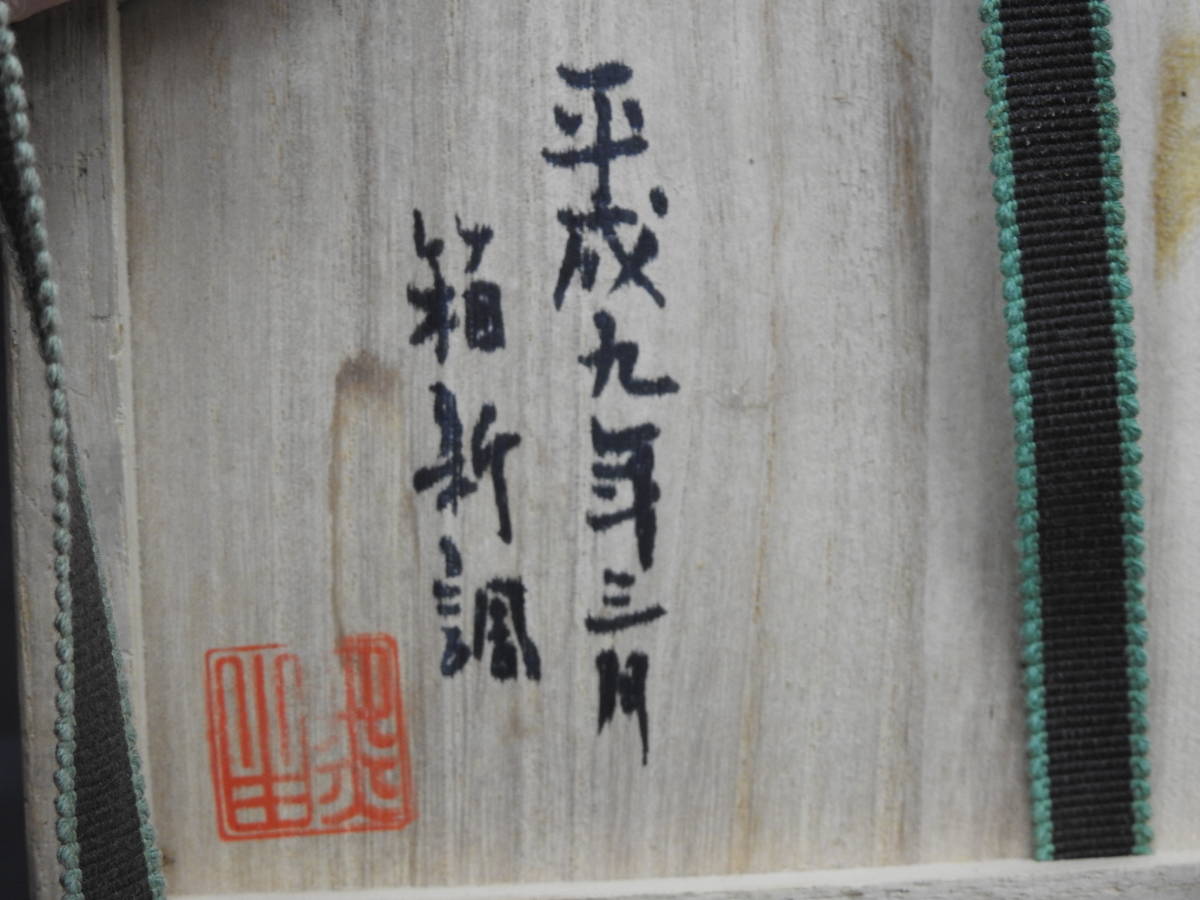 平成九年三月
箱新調